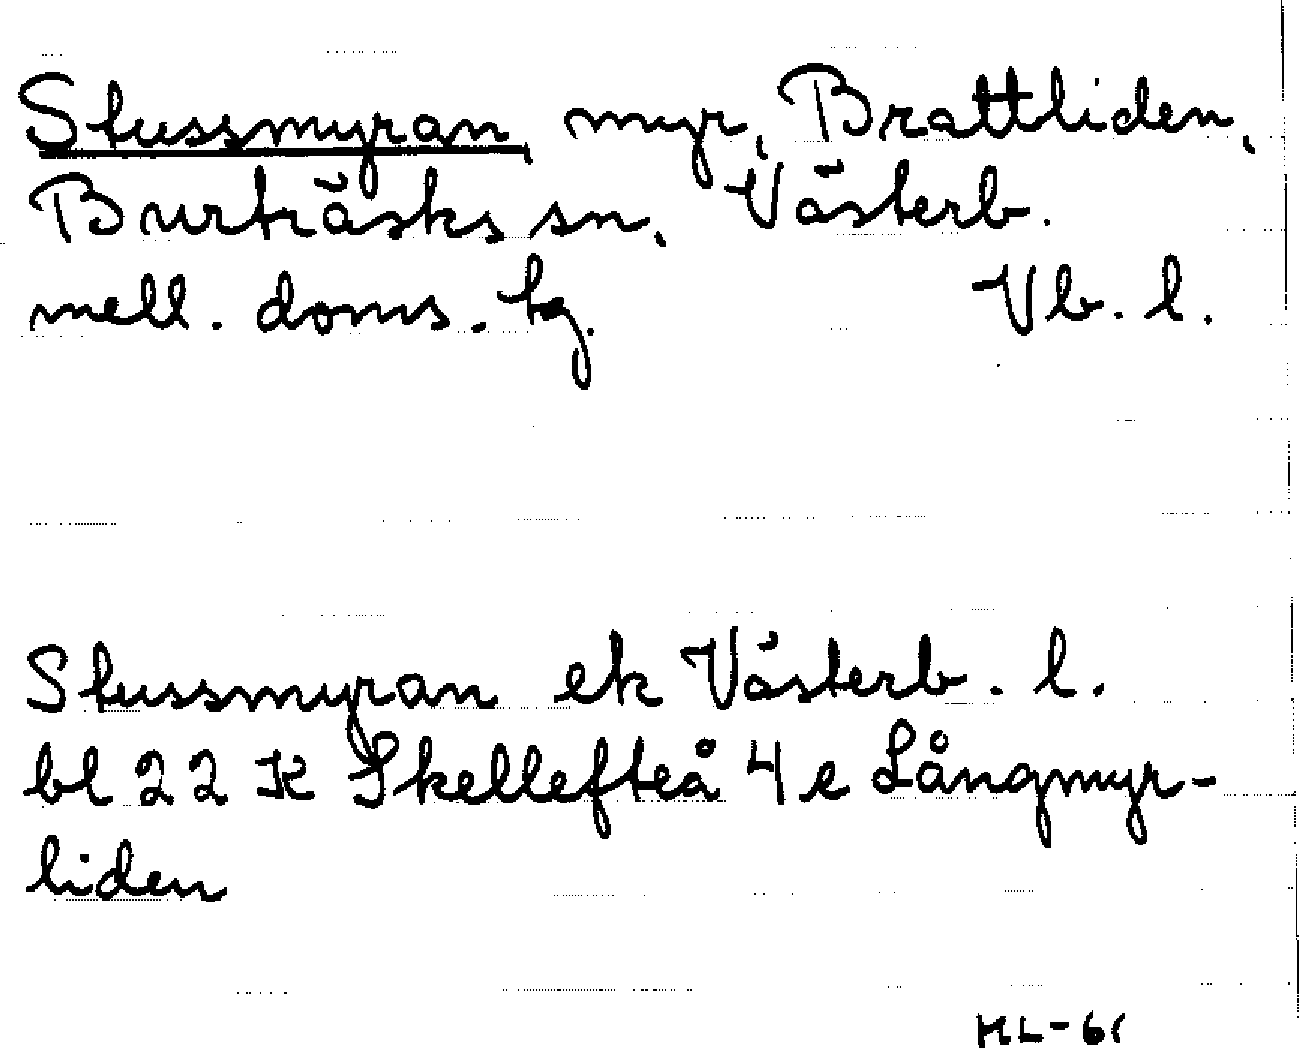 Stussmyran, myr, Brattliden,
Burträsks sn, Västerb.
mell. doms. tg. Vb. l.
Stussmyran ek Västerb. l.
bl 22 K Skellefteå 4 e Långmyr-
liden
ML-61